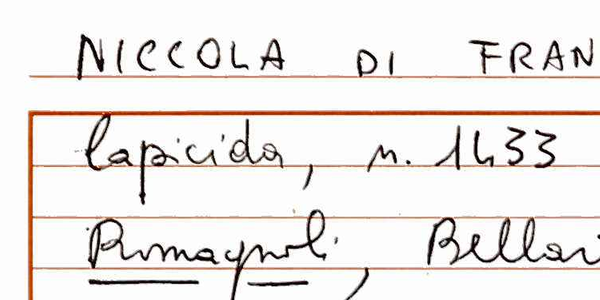 NICCOLA DI FRAN
lapicida, n. 1433
Romagnoli, Bellar